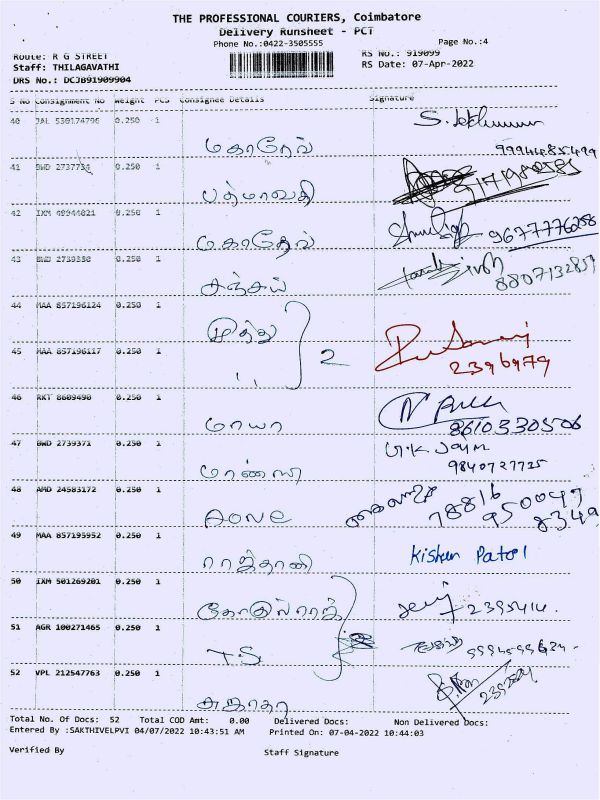 THE PROFESSIONAL COURIERS, Coimbatore
Delivery Runsheet - PCT
Phone No.:0422-3505555 Page No.:4
Route: R G STREET RS No.: 919099
Staff: THILAGAVATHI RS Date: 07-Apr-2022
DRS No.: DCJB91909904
S No Consignment No Weight PCS Consignee Details Signature
40 JAL 530174796 0.250 1
மகாதேவ் 9994485499
41 BWD 2737734 0.250 1
பத்மாவதி
42 IXM 0.250 1
மகாதேவ் 9677776258
43 BWD 0.250 1
சஞ்சய் 8807132857
44 MAA 857196124 0.250 1
முத்து
45 MAA 857196117 0.250 1 2
,, 2396979
46 RKT 8609490 0.250 1
மாயா 8610330506
47 BWD 2739371 0.250 1
மான்ஸி 9840727725
48 AMD 24583172 0.250 1
Aone 78816 950047 8349
49 MAA 857195952 0.250 1
ராஜ்தானி Kishun Patel
50 IXM 501269201 0.250 1
கோகுல்ராஜ் 2395414.
51 AGR 100271465 0.250 1
T.S
52 VPL 212547763 0.250 1
சுஜாதா
Total No. Of Docs: 52 Total COD Amt: 0.00 Delivered Docs: Non Delivered Docs:
Entered By :SAKTHIVELPVI 04/07/2022 10:43:51 AM Printed On: 07-04-2022 10:44:03
Verified By Staff Signature